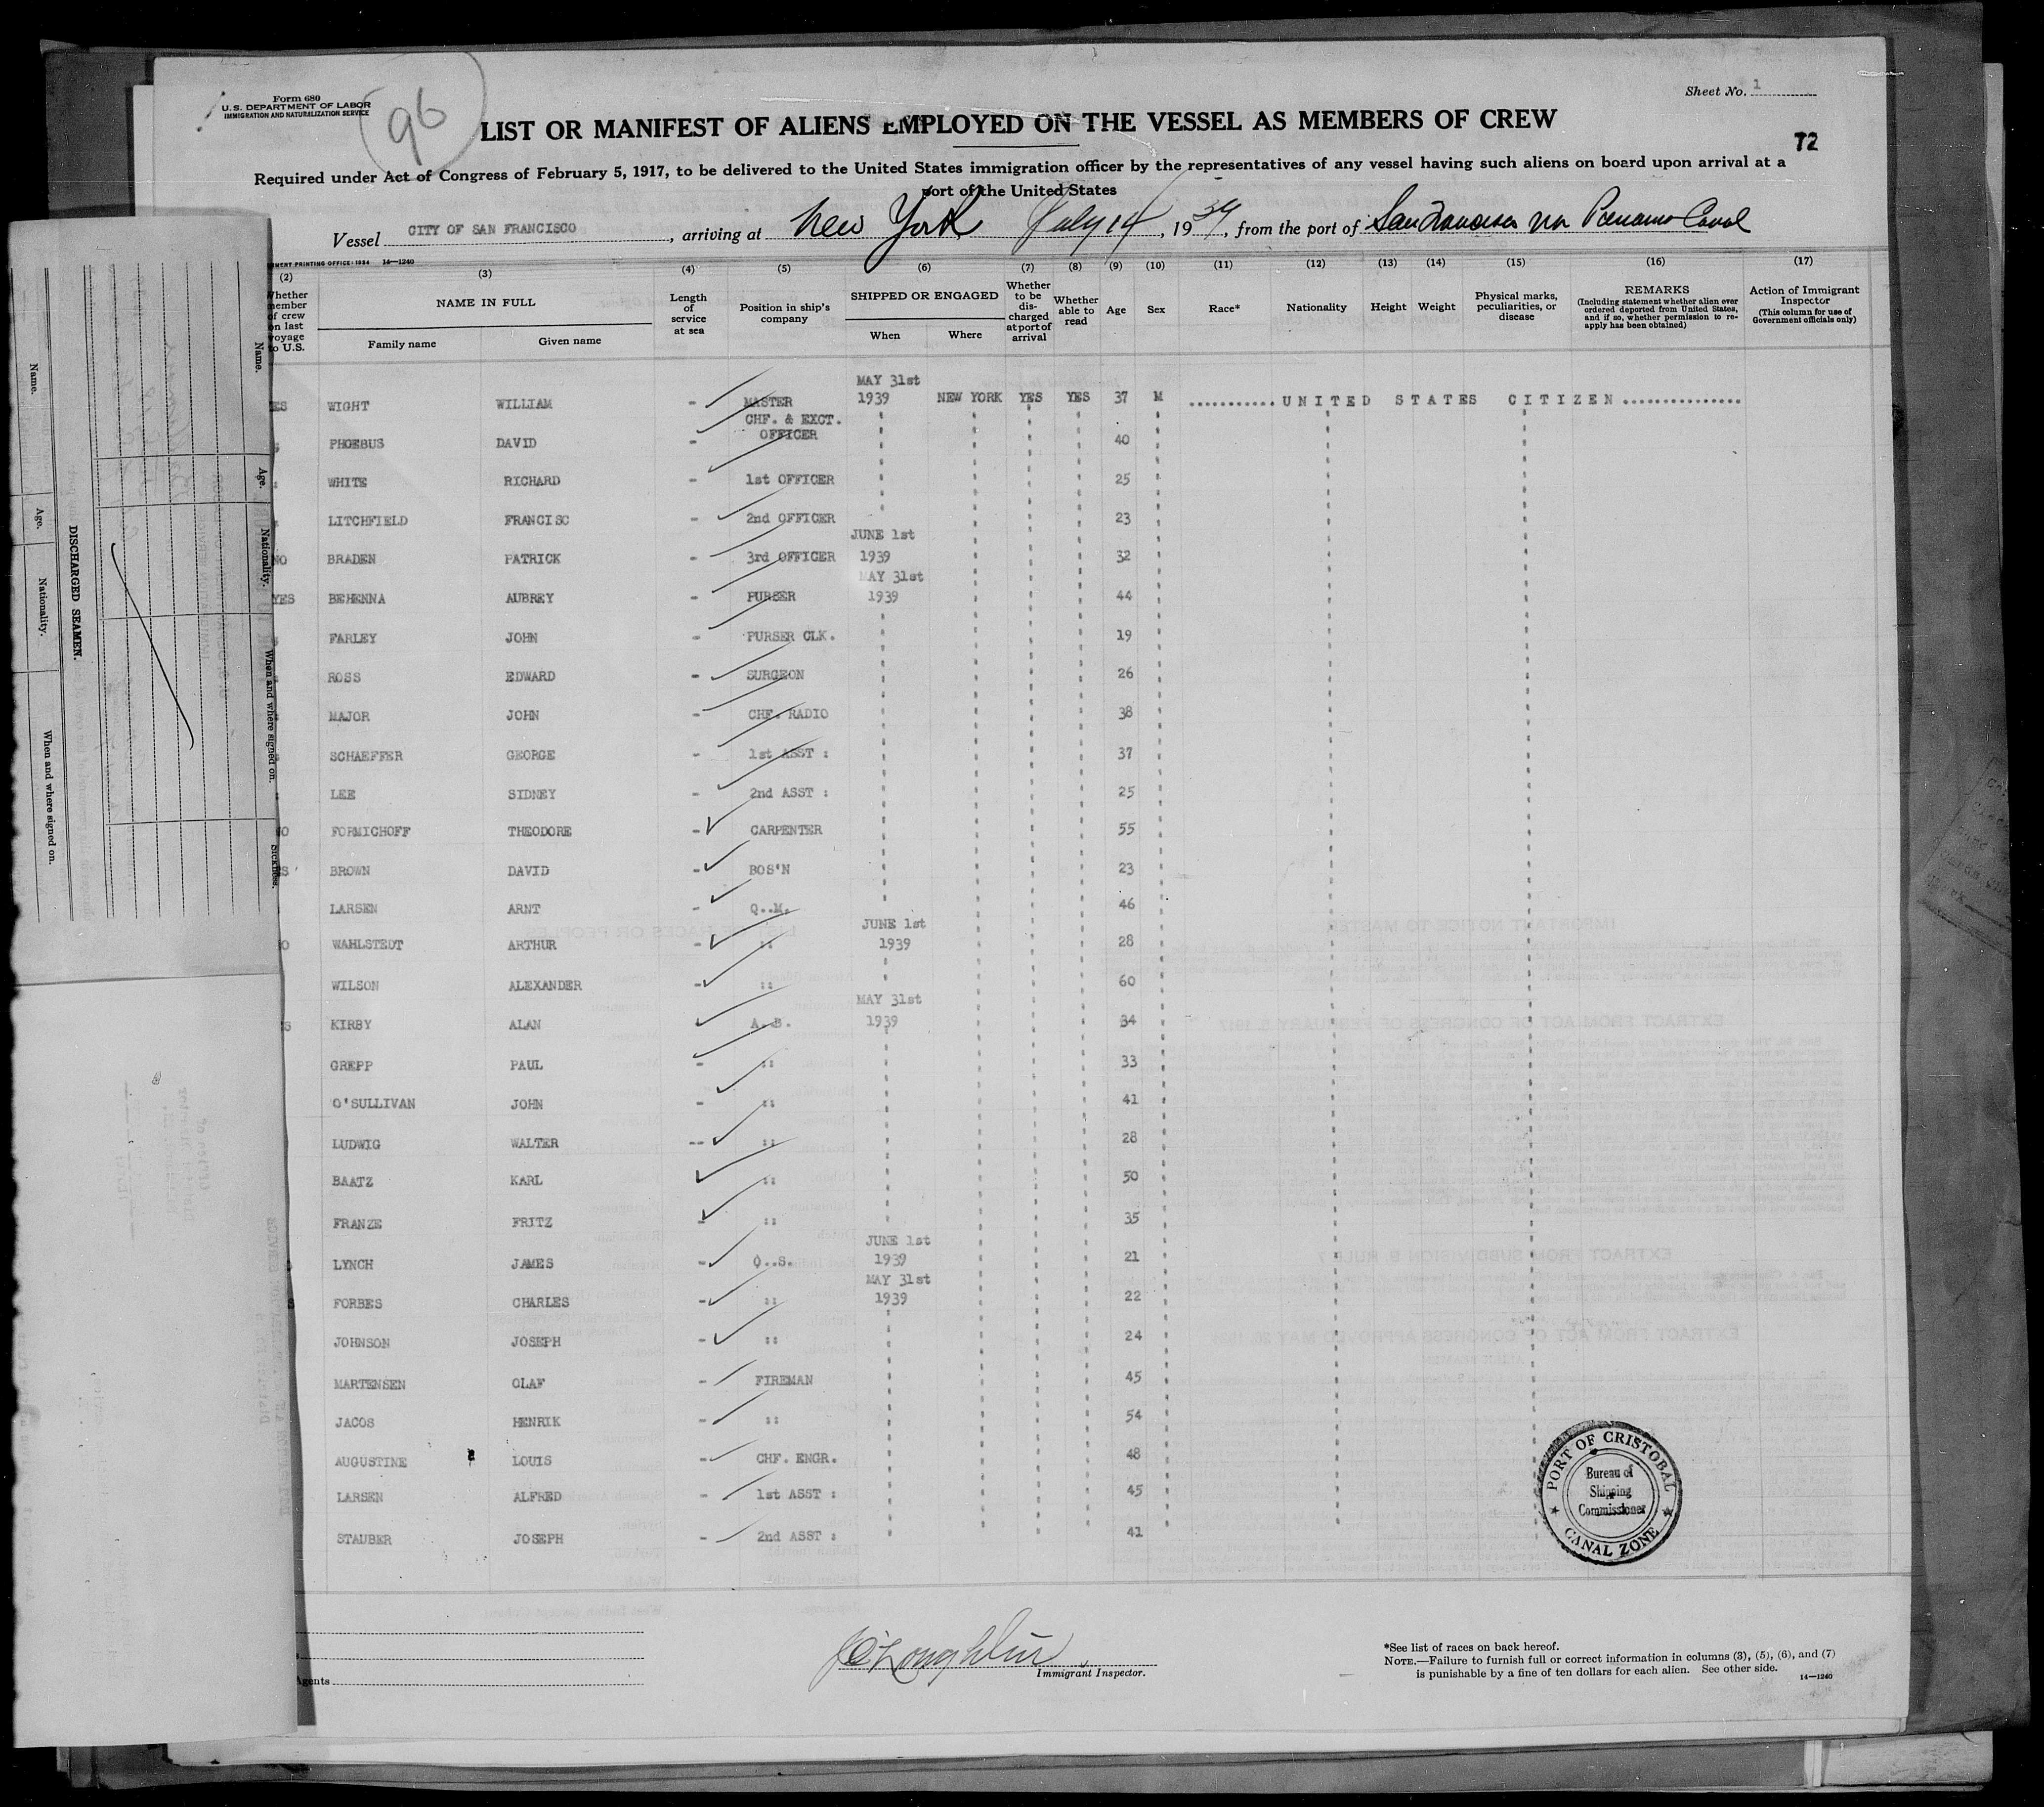 Form 680
U.S. DEPARTMENT OF LABOR
IMMIGRATION AND NATURALIZATION SERVICE
96
Sheet No. 1
LIST OR MANIFEST OF ALIENS EMPLOYED ON THE VESSEL AS MEMBERS OF CREW
72
Required under Act of Congress of February 5, 1917, to be delivered to the United States immigration officer by the representatives of any vessel having such aliens on board upon arrival at a
port of the United States
Vessel CITY OF SAN FRANCISCO, arriving at New York July 14, 1939, from the port of San Francisco via Panama Canal
PRINTING OFFICE: 1934 14—1240
(2) (3) (4) (5) (6) (7) (8) (9) (10) (11) (12) (13) (14) (15) (16) (17)
Whether member of crew on last voyage to U.S.
NAME IN FULL
Family name Given name
Length of service at sea
Position in ship's company
SHIPPED OR ENGAGED
When Where
Whether to be discharged at port of arrival
Whether able to read
Age Sex Race* Nationality Height Weight
Physical marks, peculiarities, or disease
REMARKS
(Including statement whether alien ever ordered deported from United States, and if so, whether permission to reapply has been obtained)
Action of Immigrant Inspector
(This column for use of Government officials only)
ES WIGHT WILLIAM - MASTER MAY 31st 1939 NEW YORK YES YES 37 M ...........UNITED STATES CITIZEN...............
PHOEBUS DAVID - CHF. & EXCT. OFFICER " " " " 40 "
WHITE RICHARD - 1st OFFICER " " " " 25 "
LITCHFIELD FRANCISC - 2nd OFFICER " " " " 23 "
NO BRADEN PATRICK - 3rd OFFICER JUNE 1st 1939 " " " 32 "
YES BEHENNA AUBREY - PURSER MAY 31st 1939 " " " 44 "
FARLEY JOHN PURSER CLK. " " " " 19 "
ROSS EDWARD - SURGEON " " " " 26 "
MAJOR JOHN - CHF. RADIO " " " " 38 "
SCHAEFFER GEORGE - 1st ASST : " " " " 37 "
LEE SIDNEY - 2nd ASST : " " " " 25 "
O FORMICHOFF THEODORE - CARPENTER " " " " 55 "
S BROWN DAVID - BOS'N " " " " 23 "
LARSEN ARNT - Q..M. " " " " 46 "
O WAHLSTEDT ARTHUR - :: JUNE 1st 1939 " " " 28 "
WILSON ALEXANDER - :: " " " " 60 "
S KIRBY ALAN - A..B. MAY 31st 1939 " " " 34 "
GREPP PAUL - :: " " " " 33 "
O'SULLIVAN JOHN - :: " " " " 41 "
LUDWIG WALTER -- :: " " " " 28 "
BAATZ KARL - :: " " " " 50 "
FRANZE FRITZ - :: " " " " 35 "
LYNCH JAMES - O..S. JUNE 1st 1939 " " " 21 "
S FORBES CHARLES - :: MAY 31st 1939 " " " 22 "
JOHNSON JOSEPH - :: " " " " 24 "
MARTENSEN OLAF - FIREMAN " " " " 45 "
JACOS HENRIK - :: " " " " 54 "
AUGUSTINE LOUIS - CHF. ENGR. " " " " 48 "
LARSEN ALFRED - 1st ASST : " " " " 45 "
STAUBER JOSEPH - 2nd ASST : " " " " 41
PORT OF CRISTOBAL
Bureau of
Shipping
Commissioner
CANAL ZONE
Agents
Immigrant Inspector.
*See list of races on back hereof.
NOTE.—Failure to furnish full or correct information in columns (3), (5), (6), and (7)
is punishable by a fine of ten dollars for each alien. See other side.
14—1240
DISCHARGED SEAMEN.
Name. Age. Nationality. When and where signed on.
Name. Age. Nationality. When and where signed on. Sickness.